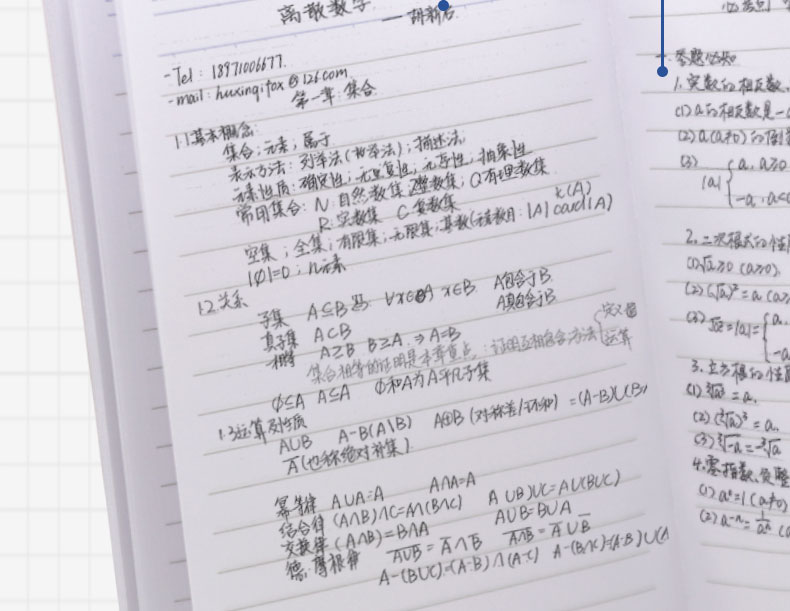 离散数学
— 胡新启
-Tel: 18971006677.
-mail: huxinqifox@126.com
第一章 集合
1.1 基本概念
集合；元素；属于
表示方法：列举法(枚举法)；描述法
元素性质：确定性；无重复性；无序性；抽象性
常用集合：N 自然数集 Z整数集；Q有理数集
R：实数集 C复数集
空集；全集；有限集；无限集；基数(元素数目：|A| card(A) K(A)
|∅|=0；n元素
1.2 关系
子集 A⊆B ∀x∈A x∈B A包含于B
真子集 A⊂B A真包含于B
相等 A⊇B B⊇A ⇒ A=B
集合相等的证明是本章重点：证明互相包含方法 定义 运算
∅⊆A A⊆A ∅和A为A平凡子集
1.3 运算及性质
A∪B A-B(A\B) A⊕B (对称差/环和) =(A-B)∪(B
A̅(也称绝对补集)
幂等律 A∪A=A A∩A=A
结合律 (A∩B)∩C=A∩(B∩C) A∪B)∪C=A∪(B∪C)
交换律 (A∩B)=B∩A A∪B=B∪A
德·摩根律 A̅∪̅B̅ = A̅∩B̅ A̅∩̅B̅ = A̅∪B̅
A-(B∪C)=(A-B)∩(A-C) A-(B∩C)=(A-B)∪(A
一. 答题必知
1. 实数的相反数、
(1) a的相反数是-a
(2) a(a≠0)的倒
(3) |a| { a, a≥0
-a, a<0
2. 二次根式的性质
(1) √a≥0 (a≥0).
(2) (√a)²=a (a≥
(3) √a²=|a|= { a,
-a
3. 立方根的性质
(1) ∛a³=a.
(2) (∛a)³=a.
(3) ∛-a=-∛a
4. 零指数、负整
(1) a⁰=1(a≠0)
(2) a⁻ⁿ=1/aⁿ (a